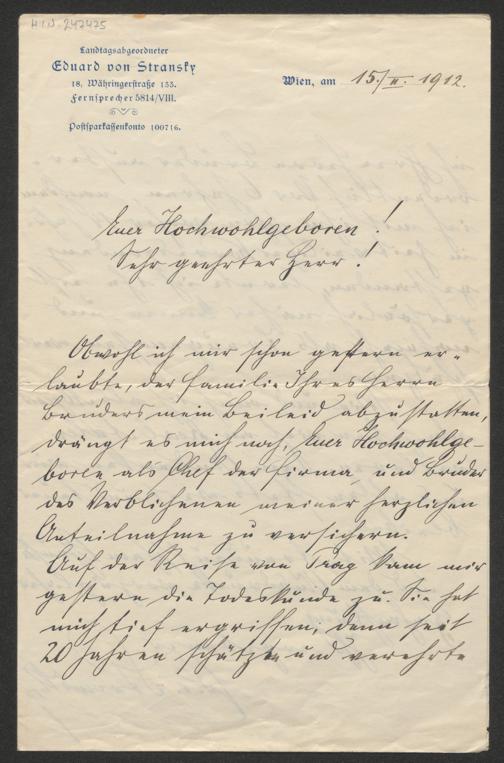 H.I.N. 247425
Landtagsabgeordneter
Eduard von Stransky
18, Währingerstraße 133.
Fernsprecher 5814/VIII.
Postsparkassenkonto 100716.
Wien, am 15./II. 1912.
Euer Hochwohlgeboren!
Sehr geehrter Herr!
Obwohl ich mir schon gestern er-
laubte, der Familie Ihres Herrn
Bruders mein Beileid abzustatten,
drängt es mich noch, Euer Hochwohlge-
boren als Chef der Firma und Bruder
des Verblichenen meiner herzlichen
Anteilnahme zu versichern.
Auf der Reise von Prag kam mir
gestern die Todeskunde zu. Sie hat
mich tief ergriffen; denn seit
20 Jahren schätzte und verehrte